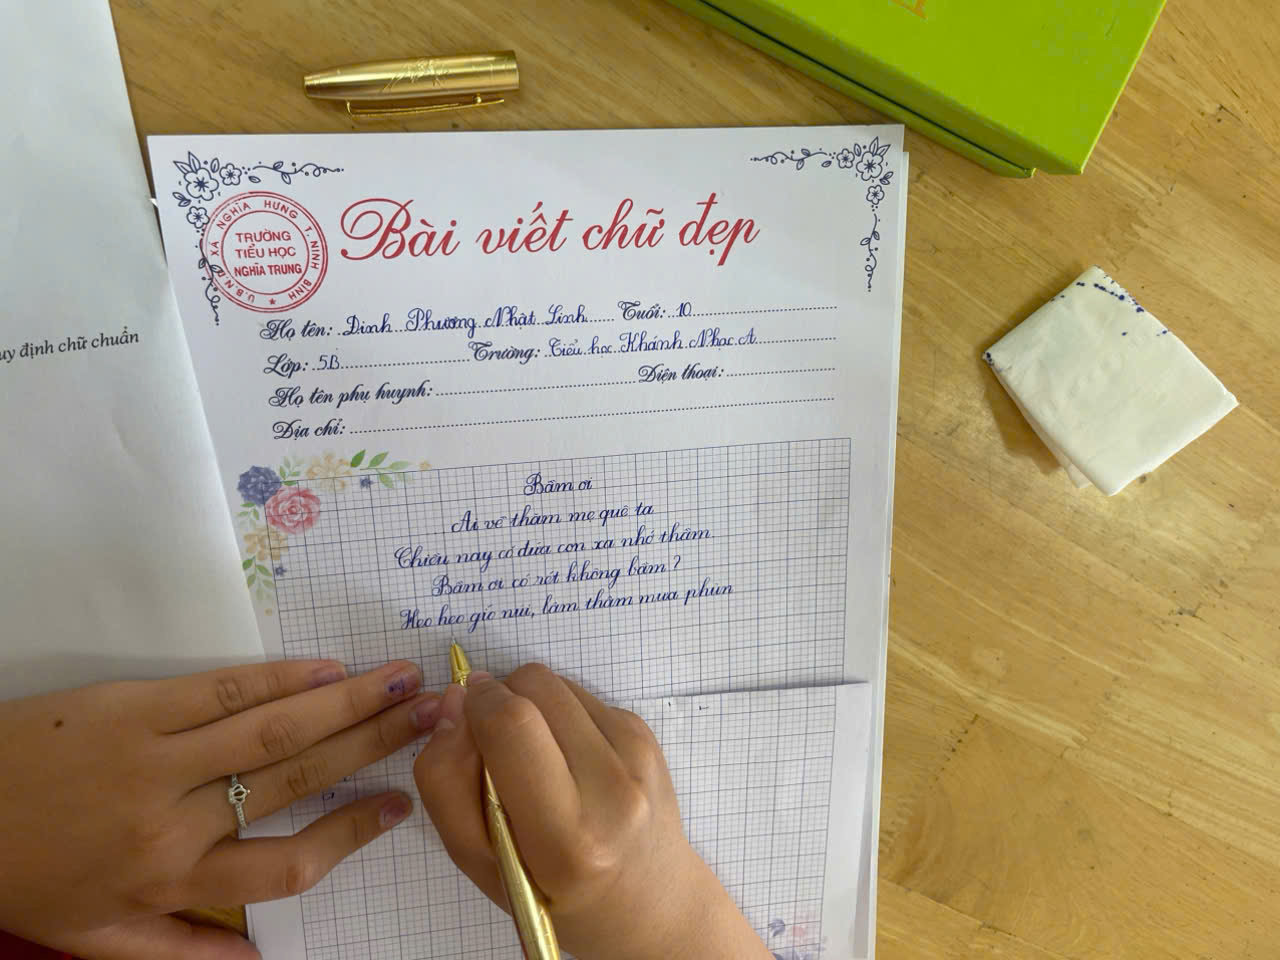 U.B.N.D XÃ NGHĨA HƯNG T. NINH BÌNH
TRƯỜNG
TIỂU HỌC
NGHĨA TRUNG
Bài viết chữ đẹp
Họ tên: Đinh Phương Nhật Linh Tuổi: 10
Lớp: 5B Trường: Tiểu học Khánh Nhạc A
Họ tên phụ huynh: Điện thoại:
Địa chỉ:
uy định chữ chuẩn
Bầm ơi
Ai về thăm mẹ quê ta
Chiều nay có đứa con xa nhớ thầm.
Bầm ơi có rét không bầm ?
Heo heo gió núi, lâm thâm mưa phùn